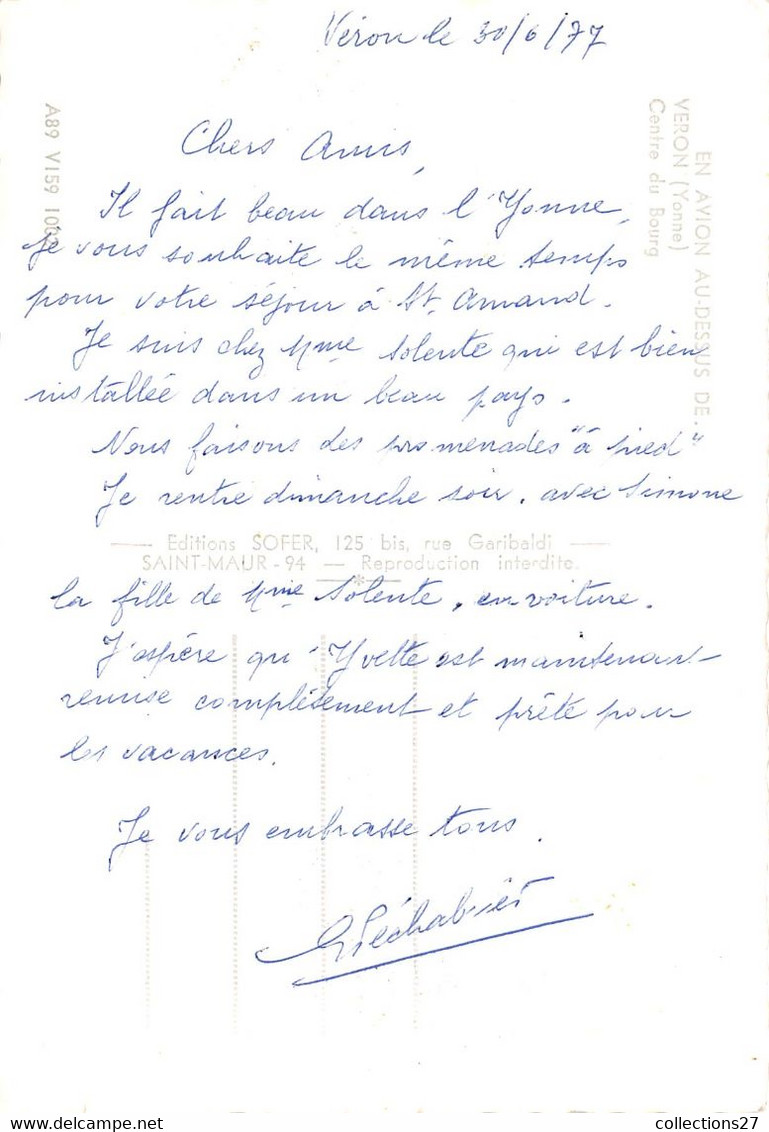 Véron le 30/6/77
Chers Amis,
Il fait beau dans l'Yonne,
je vous souhaite le même temps
pour votre séjour à St. Amand.
Je suis chez Mme Solente qui est bien
installée dans un beau pays.
Nous faisons des promenades "à pied"
Je rentre dimanche soir. avec Simone
la fille de Mme Solente, en voiture.
J'espère qu'Yvette est maintenant
remise complètement et prête pour
les vacances.
Je vous embrasse tous.
EN AVION AU-DESSUS DE...
VERON (Yonne)
Centre du Bourg
A89 V159 1002
Editions SOFER, 125 bis, rue Garibaldi
SAINT-MAUR-94 — Reproduction interdite.
collections27